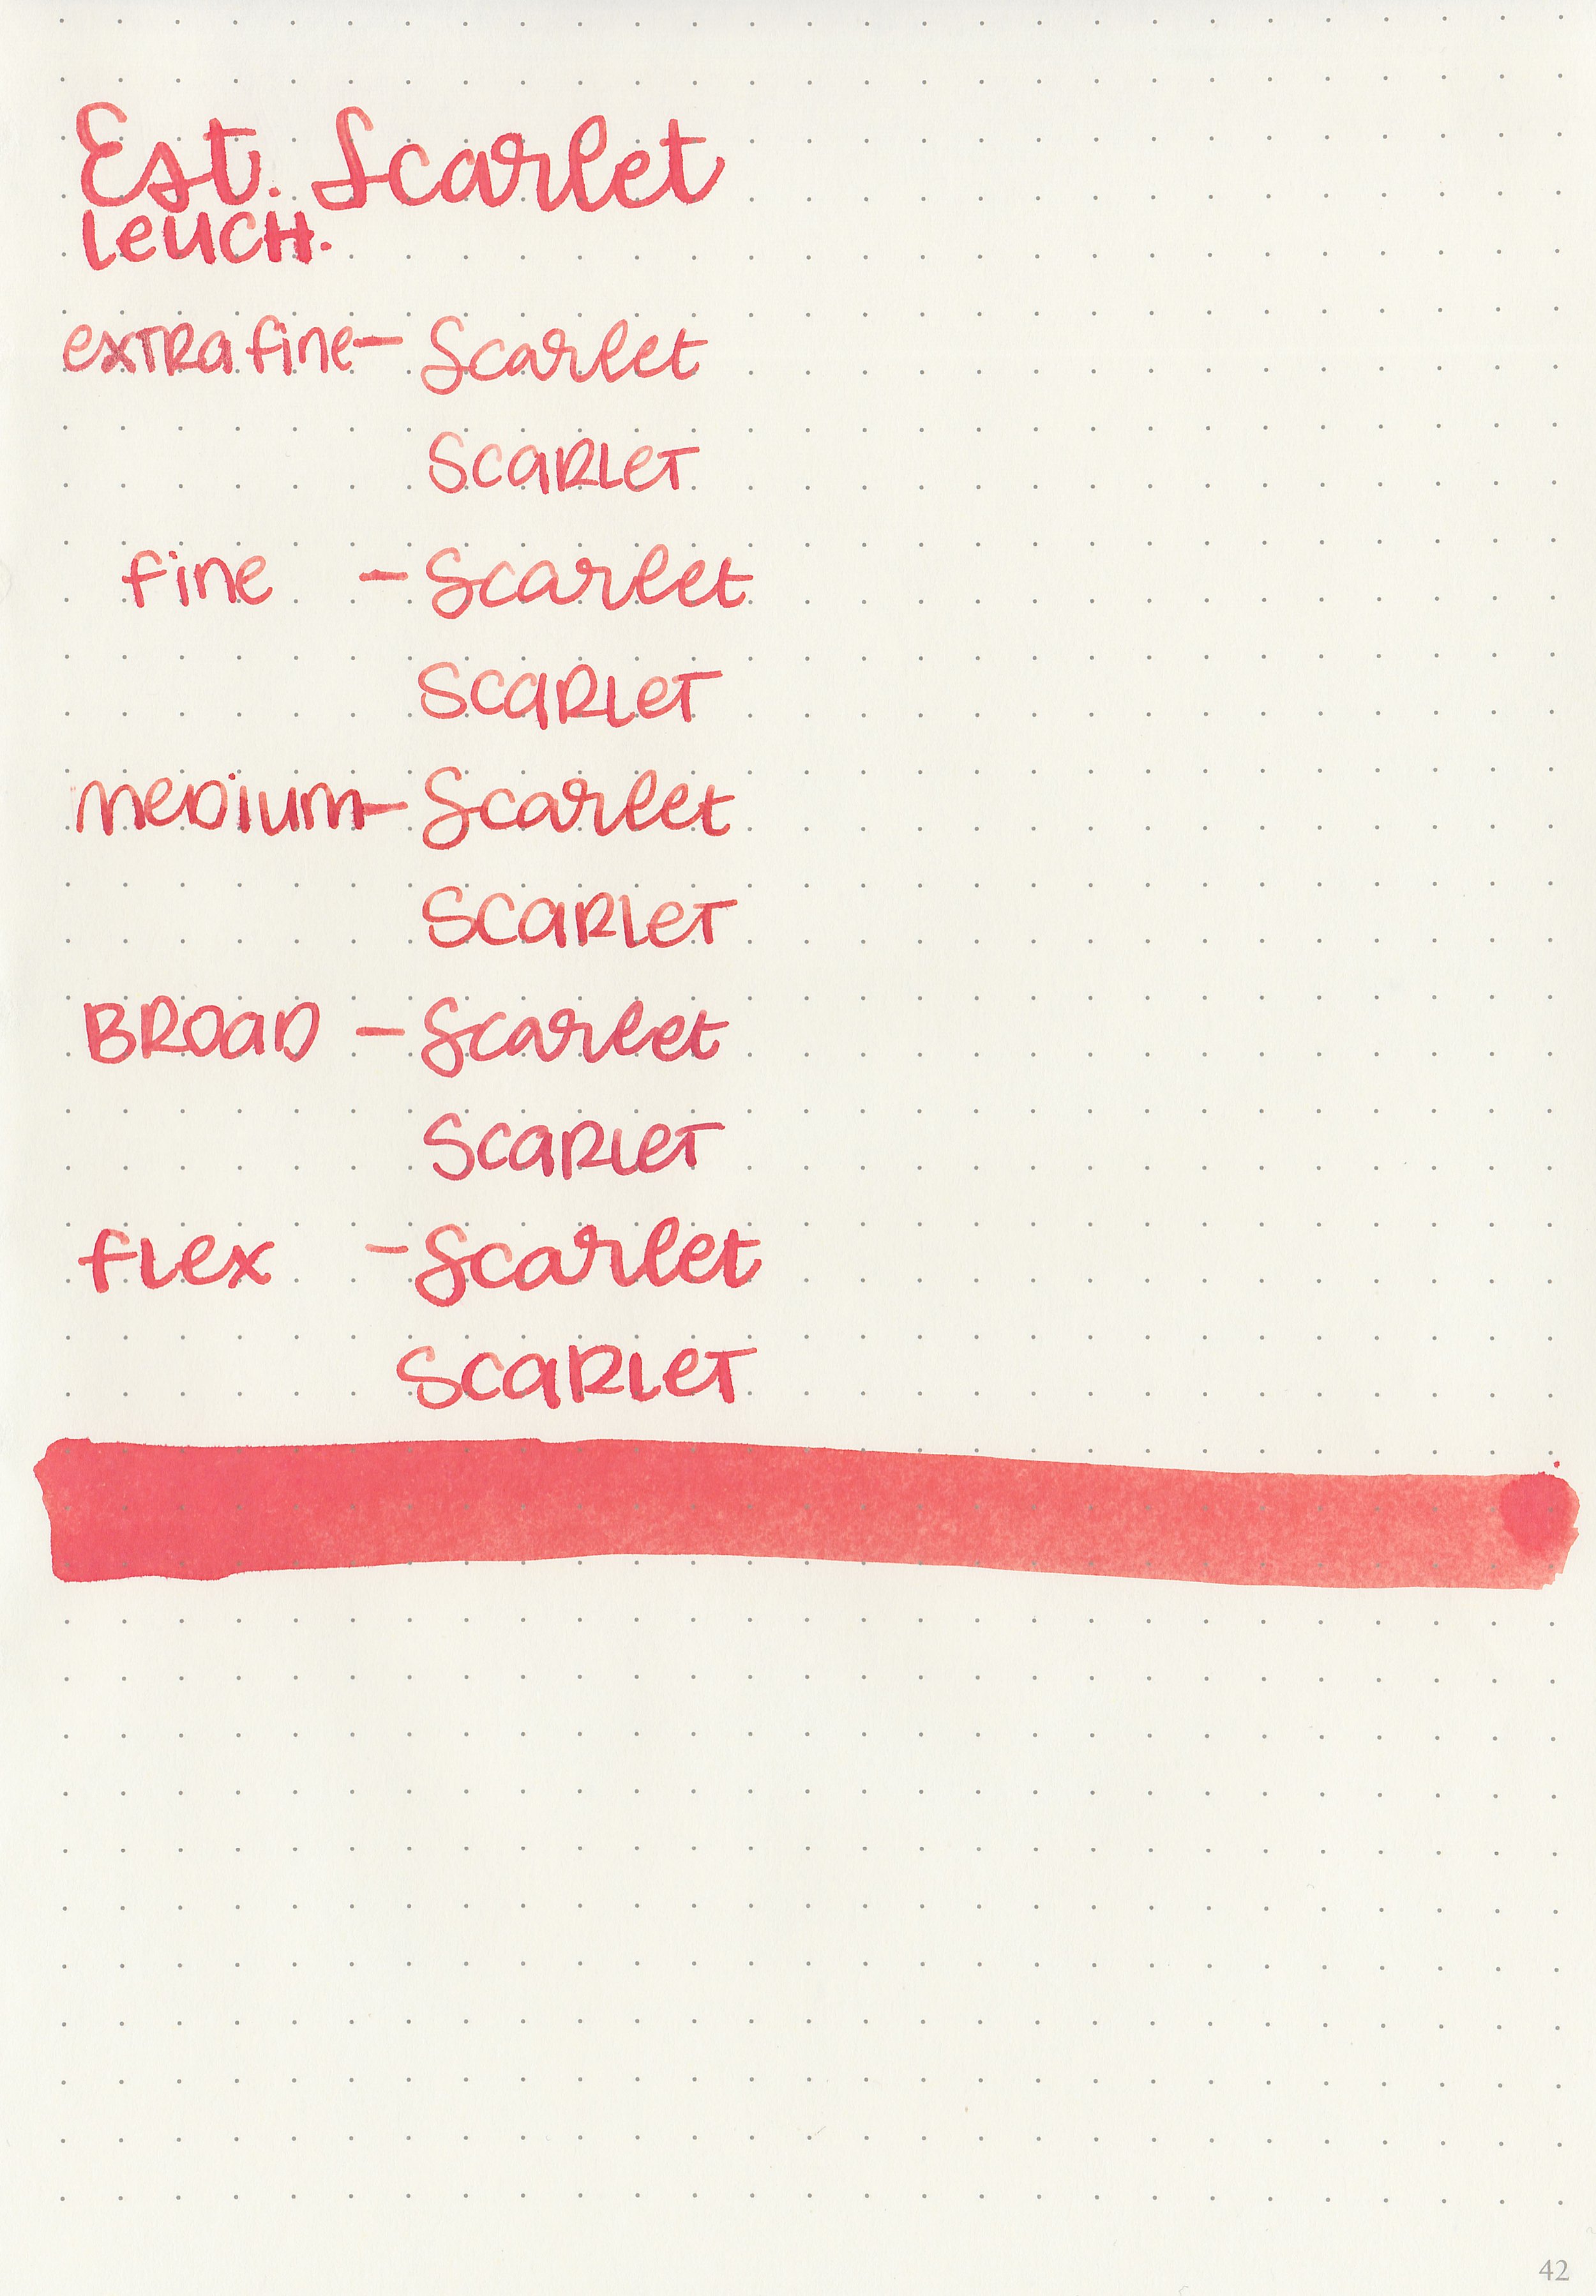 Est. Scarlet
LeUCH.
exTRa fine - Scarlet
SCaRLeT
fine - Scarlet
SCaRLeT
meDium - Scarlet
SCaRLeT
BROaD - Scarlet
SCaRLeT
fLex - Scarlet
SCaRLeT
42